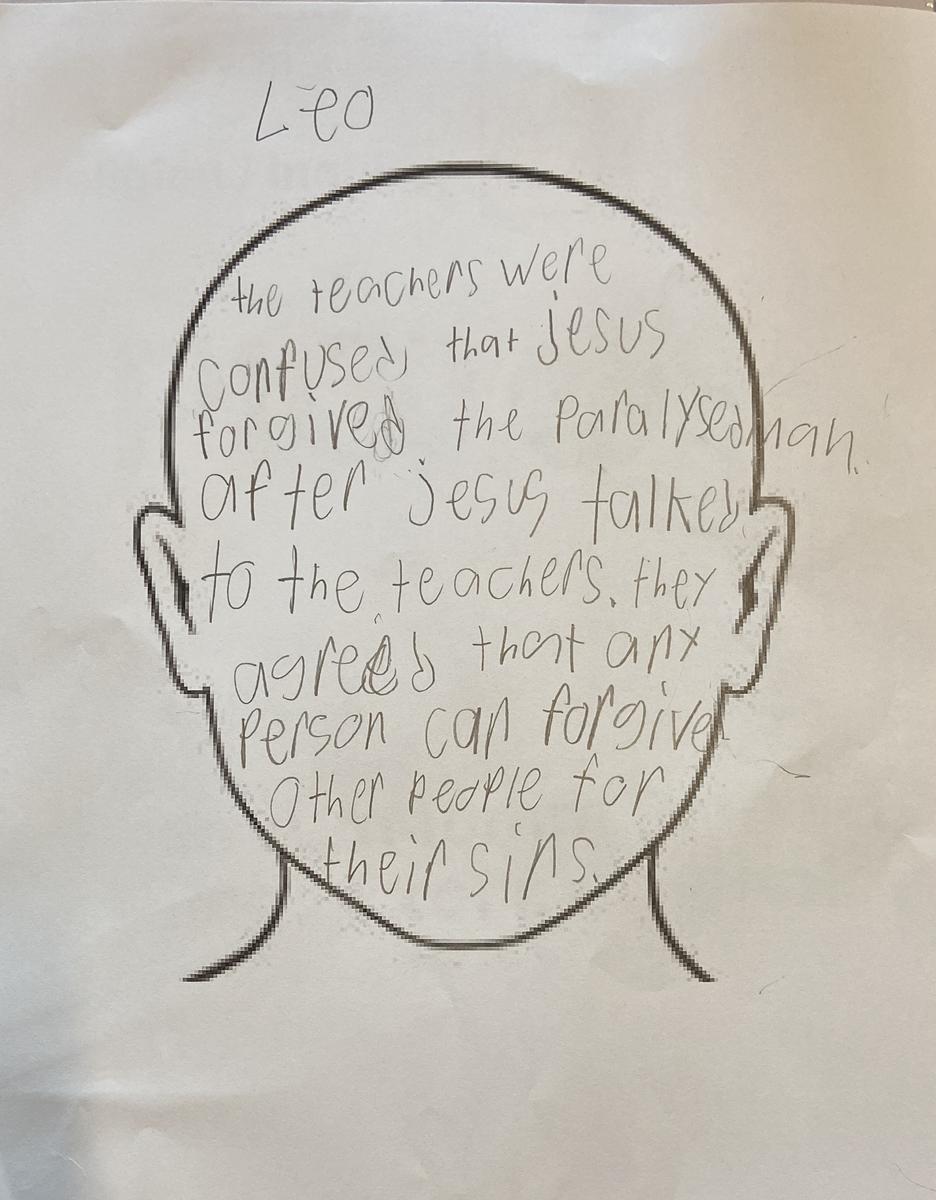 Leo
the teachers were
confused that jesus
forgived the paralysed man.
after jesus talked
to the teachers. they
agreed that any
person can forgive
other people for
their sins.